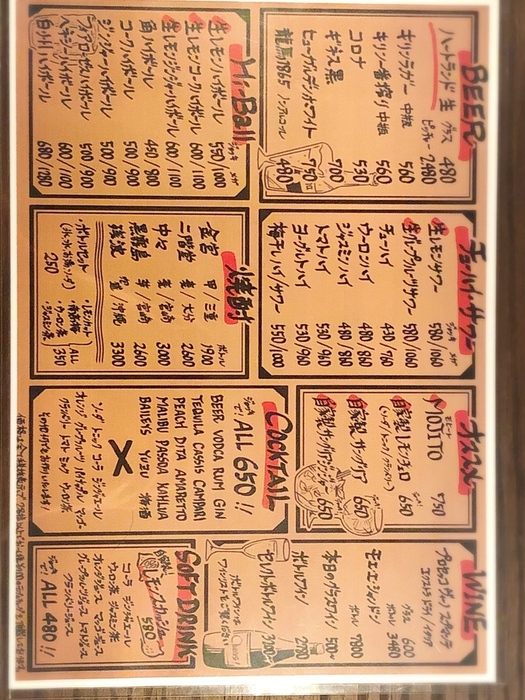 BEER
ハートランド 生 グラス 480
ピッチャー 2480
キリンラガー 中瓶 560
キリン一番搾り 中瓶 560
コロナ 530
ギネス 黒 700
ヒューガルデンホワイト 750
龍馬1865 ノンアルコール 480
チューハイ・サワー
ジョッキ メガ
生レモンサワー 580/1060
生グレープフルーツサワー 580/1060
チューハイ 430/760
ウーロンハイ 480/860
ジャスミンハイ 480/860
トマトハイ 530/960
ヨーグルトハイ 530/960
梅干しハイ/サワー 550/1000
オススメ
MOJITO モヒート 750
自家製レモンチェロ 650
自家製サングリア 650
自家製サングリアジンジャー 650
WINE
グラス 600
ボトル 3480
モエ・エ・シャンドン ボトル 7000
本日のグラスワイン 500〜
ボトルワイン 2700
セレクトボトルワイン 3000〜
Hi-Ball
ジョッキ メガ
生レモンハイボール 550/1000
生レモンコークハイボール 600/1100
生レモンジンジャーハイボール 600/1100
角ハイボール 450/800
コークハイボール 500/900
ジンジャーハイボール 500/900
フォアローゼスハイボール 500/900
600/1100
白州ハイボール 680/1280
焼酎
ボトル
金宮 甲/三重 1900
二階堂 麦/大分 2600
中々 麦/宮崎 3000
黒霧島 芋/宮崎 2600
残波 米/沖縄 3300
・ボトルセット
(氷、水、お湯、レモン)
250
・ウーロン茶
・ジャスミン茶
ALL 350
COCKTAIL
ジョッキで! ALL 650!!
BEER VODCA RUM GIN
TEQUILA CASSIS CAMPARI
PEACH DITA AMARETTO
MALIBU PASSOA KAHLUA
BAILEYS YUZU 梅酒
×
ソーダ トニック コーラ ジンジャエール
オレンジ グレープフルーツ パイナップル マンゴー
クランベリー トマト ミルク ウーロン茶
SOFT DRINK
モンスターエナジー 550
コーラ ジンジャエール
ウーロン茶 ジャスミン茶
オレンジジュース マンゴージュース
グレープフルーツジュース トマトジュース
クランベリージュース
ジョッキで ALL 480!!